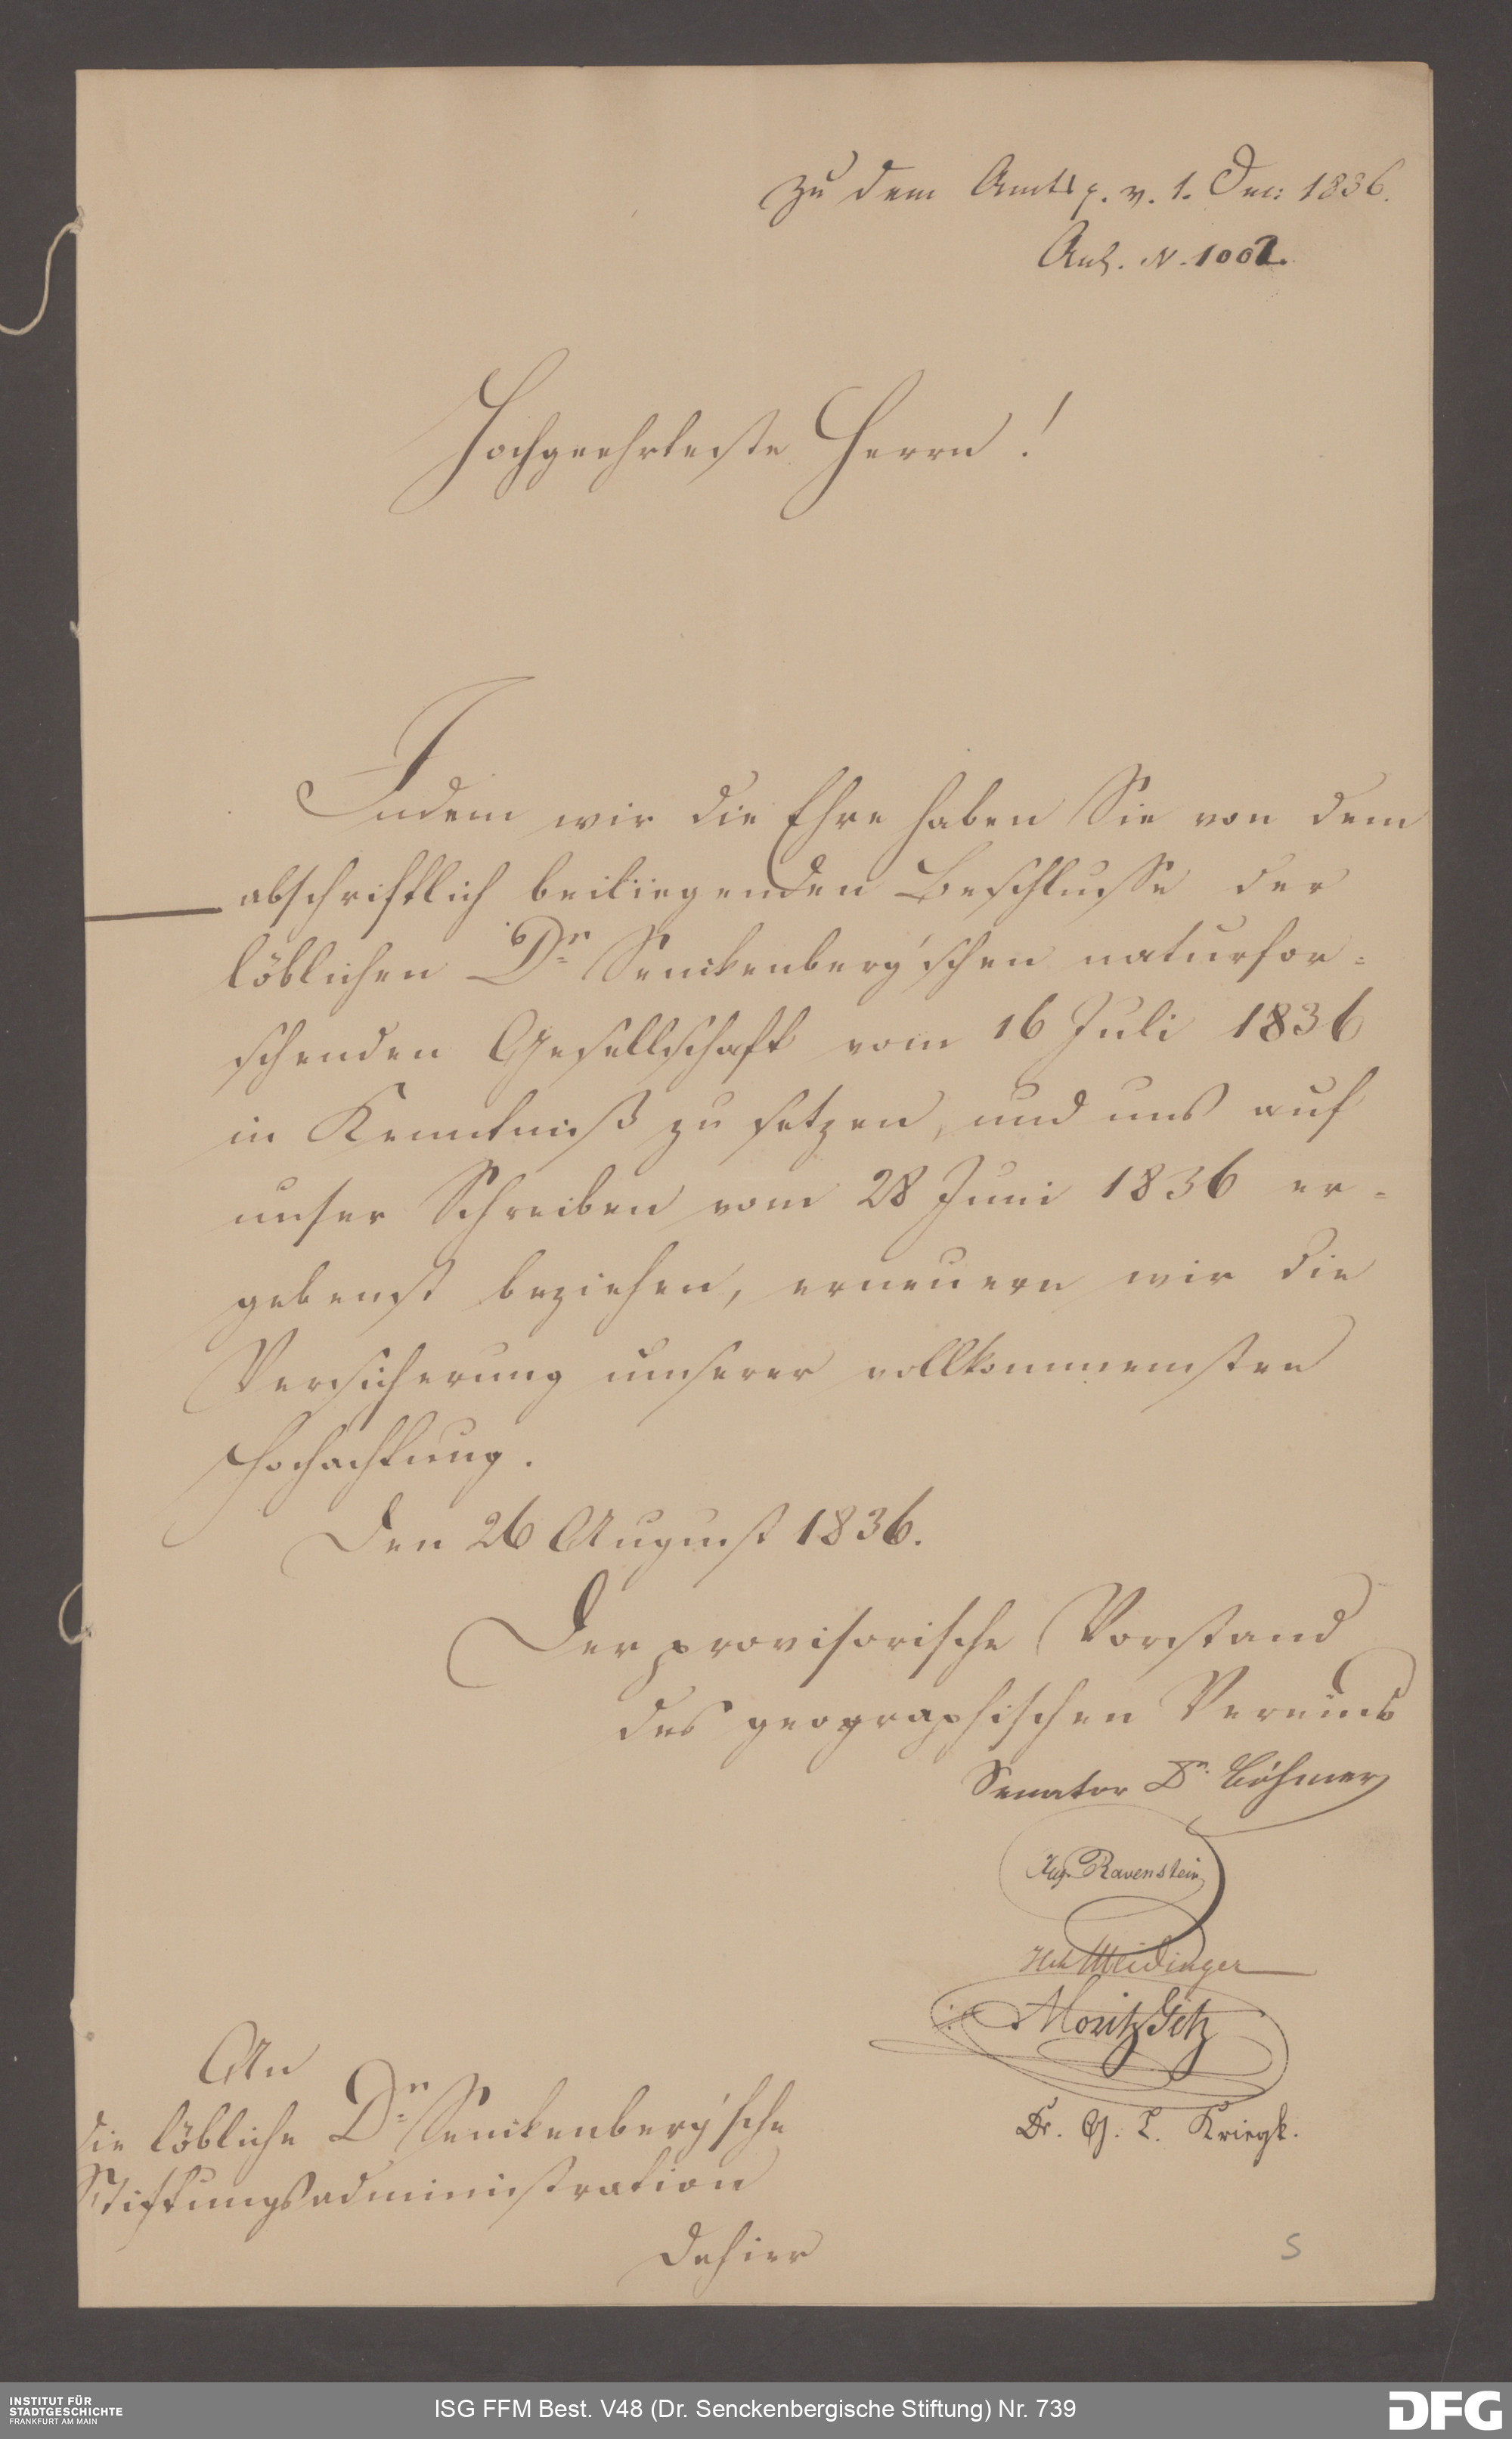 Zu dem Amts p. v. 1. Dec: 1836.
Anl. N. 1002.
Hochgeehrteste Herrn!
Indem wir die Ehre haben Sie von dem
abschriftlich beiliegenden Beschlusse der
löblichen Dr Senckenberg'schen naturfor=
schenden Gesellschaft vom 16 Juli 1836
in Kenntniß zu setzen, und uns auf
unser Schreiben vom 28 Juni 1836 er=
gebenst beziehen, erneuern wir die
Versicherung unserer vollkommensten
Hochachtung.
Den 26 August 1836.
Der provisorische Vorstand
des geographischen Vereins
Senator Dr. Böhmer
Aug. Ravenstein
Hch Meidinger
Moritz Götz
Dr. G. L. Kriegk.
An
die löbliche Dr Senckenberg'sche
Stiftungsadministration
dahier
5
INSTITUT FÜR
STADTGESCHICHTE
FRANKFURT AM MAIN
ISG FFM Best. V48 (Dr. Senckenbergische Stiftung) Nr. 739
DFG